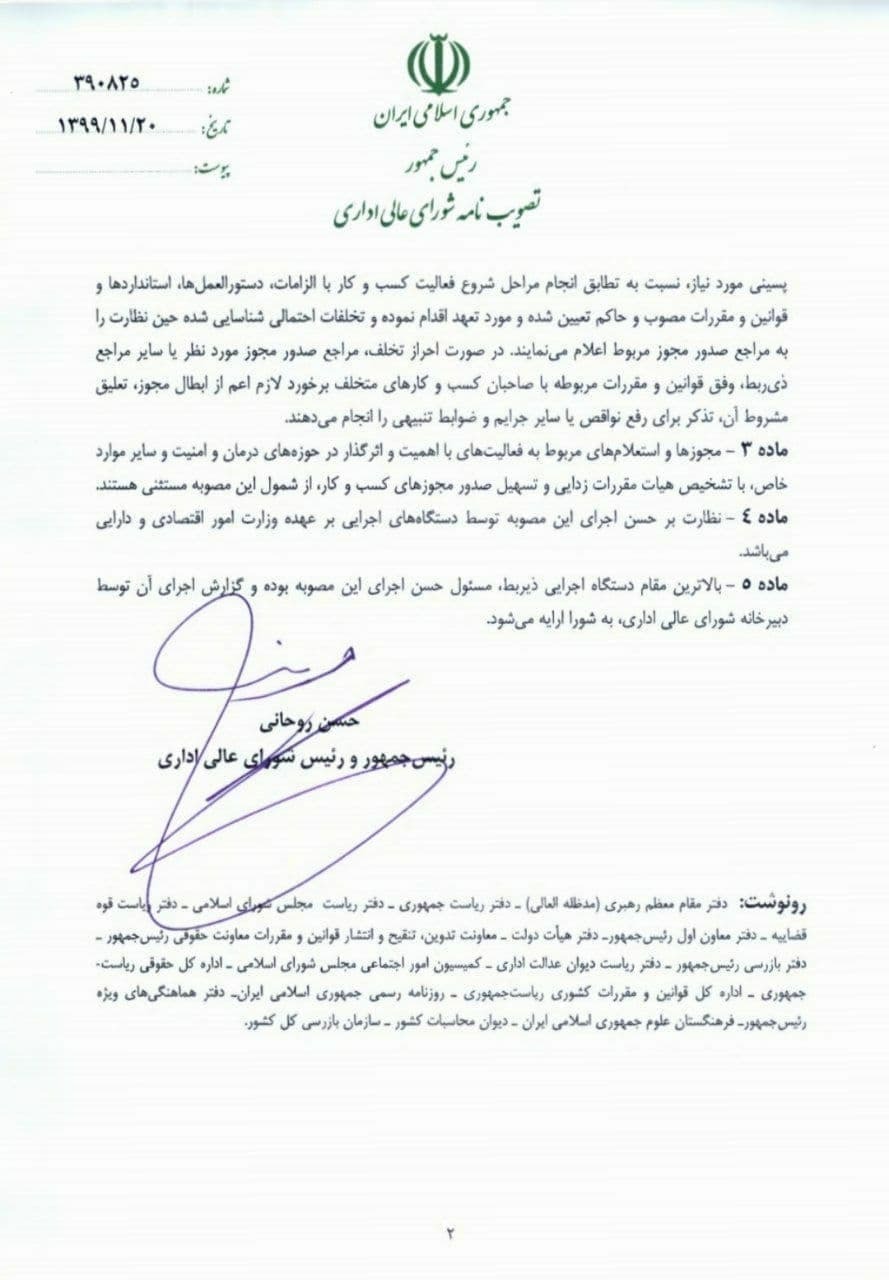 جمهوری اسلامی ایران
رئیس جمهور
تصویب نامه شورای عالی اداری
شماره: ۳۹۰۸۲۵
تاریخ: ۱۳۹۹/۱۱/۲۰
پیوست:
پسینی مورد نیاز، نسبت به تطابق انجام مراحل شروع فعالیت کسب و کار با الزامات، دستورالعمل‌ها، استانداردها و
قوانین و مقررات مصوب و حاکم تعیین شده و مورد تعهد اقدام نموده و تخلفات احتمالی شناسایی شده حین نظارت را
به مراجع صدور مجوز مربوط اعلام می‌نمایند. در صورت احراز تخلف، مراجع صدور مجوز مورد نظر یا سایر مراجع
ذی‌ربط، وفق قوانین و مقررات مربوطه با صاحبان کسب و کارهای متخلف برخورد لازم اعم از ابطال مجوز، تعلیق
مشروط آن، تذکر برای رفع نواقص یا سایر جرایم و ضوابط تنبیهی را انجام می‌دهند.
ماده ۳ - مجوزها و استعلام‌های مربوط به فعالیت‌های با اهمیت و اثرگذار در حوزه‌های درمان و امنیت و سایر موارد
خاص، با تشخیص هیات مقررات زدایی و تسهیل صدور مجوزهای کسب و کار، از شمول این مصوبه مستثنی هستند.
ماده ۴ - نظارت بر حسن اجرای این مصوبه توسط دستگاه‌های اجرایی بر عهده وزارت امور اقتصادی و دارایی
می‌باشد.
ماده ۵ - بالاترین مقام دستگاه اجرایی ذیربط، مسئول حسن اجرای این مصوبه بوده و گزارش اجرای آن توسط
دبیرخانه شورای عالی اداری، به شورا ارایه می‌شود.
حسن روحانی
رئیس‌جمهور و رئیس شورای عالی اداری
رونوشت: دفتر مقام معظم رهبری (مدظله العالی) ـ دفتر ریاست جمهوری ـ دفتر ریاست مجلس شورای اسلامی ـ دفتر ریاست قوه
قضاییه ـ دفتر معاون اول رئیس‌جمهورـ دفتر هیأت دولت ـ معاونت تدوین، تنقیح و انتشار قوانین و مقررات معاونت حقوقی رئیس‌جمهور ـ
دفتر بازرسی رئیس‌جمهور ـ دفتر ریاست دیوان عدالت اداری ـ کمیسیون امور اجتماعی مجلس شورای اسلامی ـ اداره کل حقوقی ریاست-
جمهوری ـ اداره کل قوانین و مقررات کشوری ریاست‌جمهوری ـ روزنامه رسمی جمهوری اسلامی ایران‌ـ دفتر هماهنگی‌های ویژه
رئیس‌جمهورـ فرهنگستان علوم جمهوری اسلامی ایران ـ دیوان محاسبات کشور ـ سازمان بازرسی کل کشور.
۲